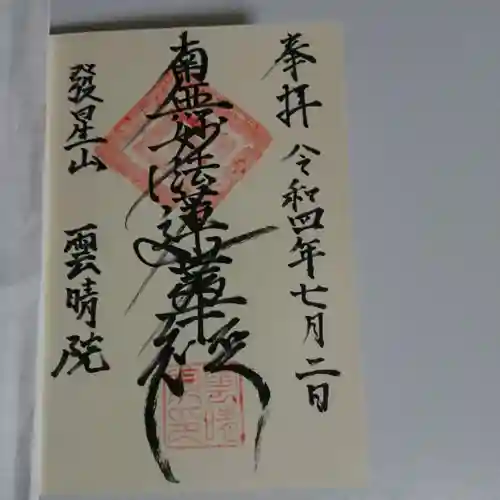 奉拝 令和四年七月二日
南無妙法蓮華経
發星山 雲晴院